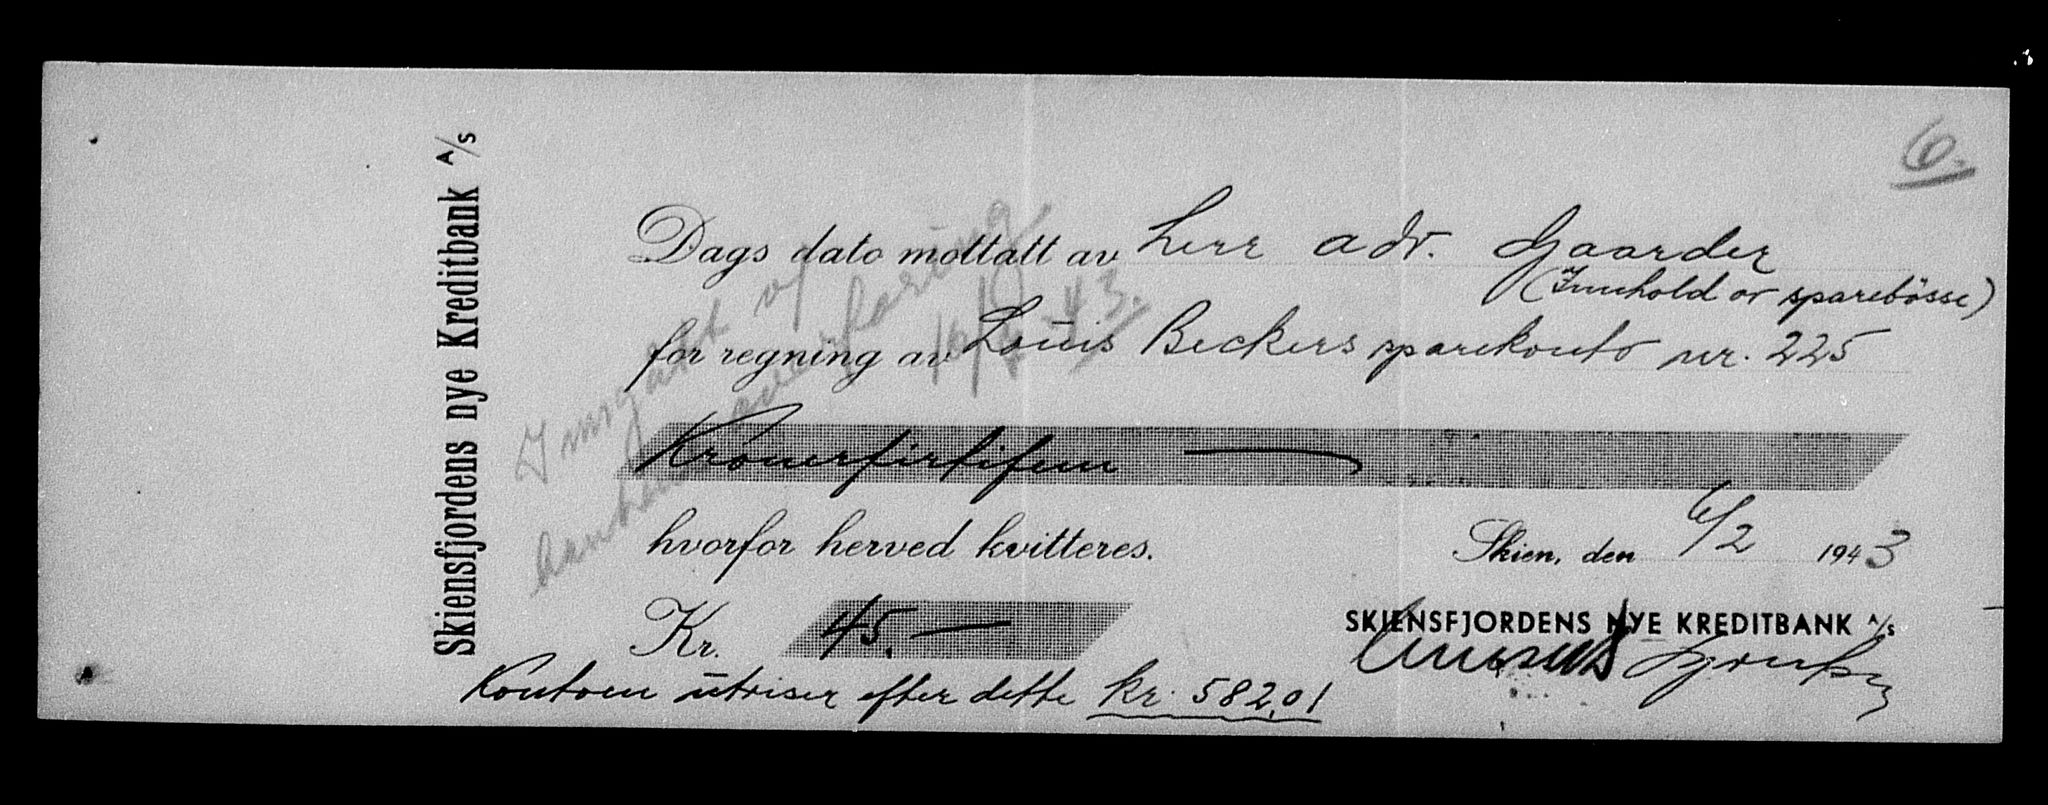 Skiensfjordens nye Kreditbank A/s
6.
Dags dato mottatt av Herr adv. Gaarder
(Innhold av sparebösse)
for regning av Louis Beckers sparekonto nr. 225
Kronerfirtifem
hvorfor herved kvitteres.
Skien, den 6/2 1943
Kr. 45.—
SKIENSFJORDENS NYE KREDITBANK A/s
Kontoen utviser efter dette kr. 582,01
Inngått